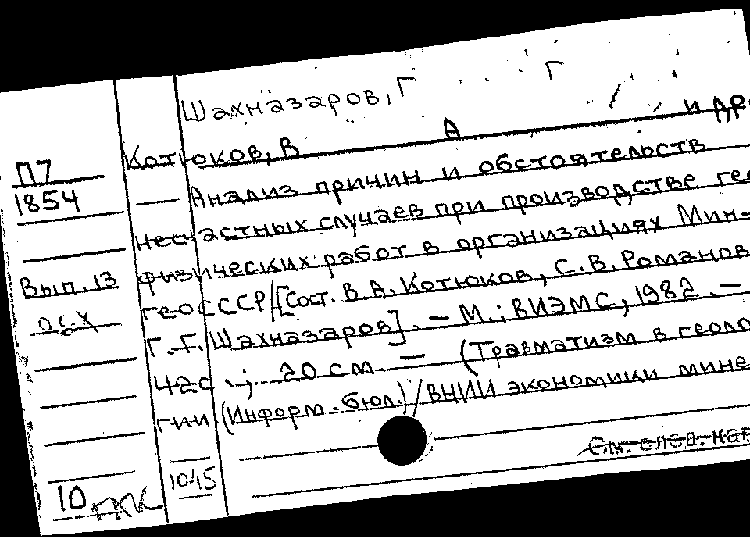 Шахназаров, Г Г
Котюков, В А и др
П7
1854
Анализ причин и обстоятельств
несчастных случаев при производстве гео
Вып. 13
физических работ в организациях Мин-
геоСССР/[Сост. В.А. Котюков, С.В. Романов
Г.Г. Шахназаров]. — М.: ВИЭМС, 1982. —
42с.; 20 см — (Травматизм в геоло
гии (Информ. бюл.)/ВНИИ экономики мине
См. след. кар
10
1045